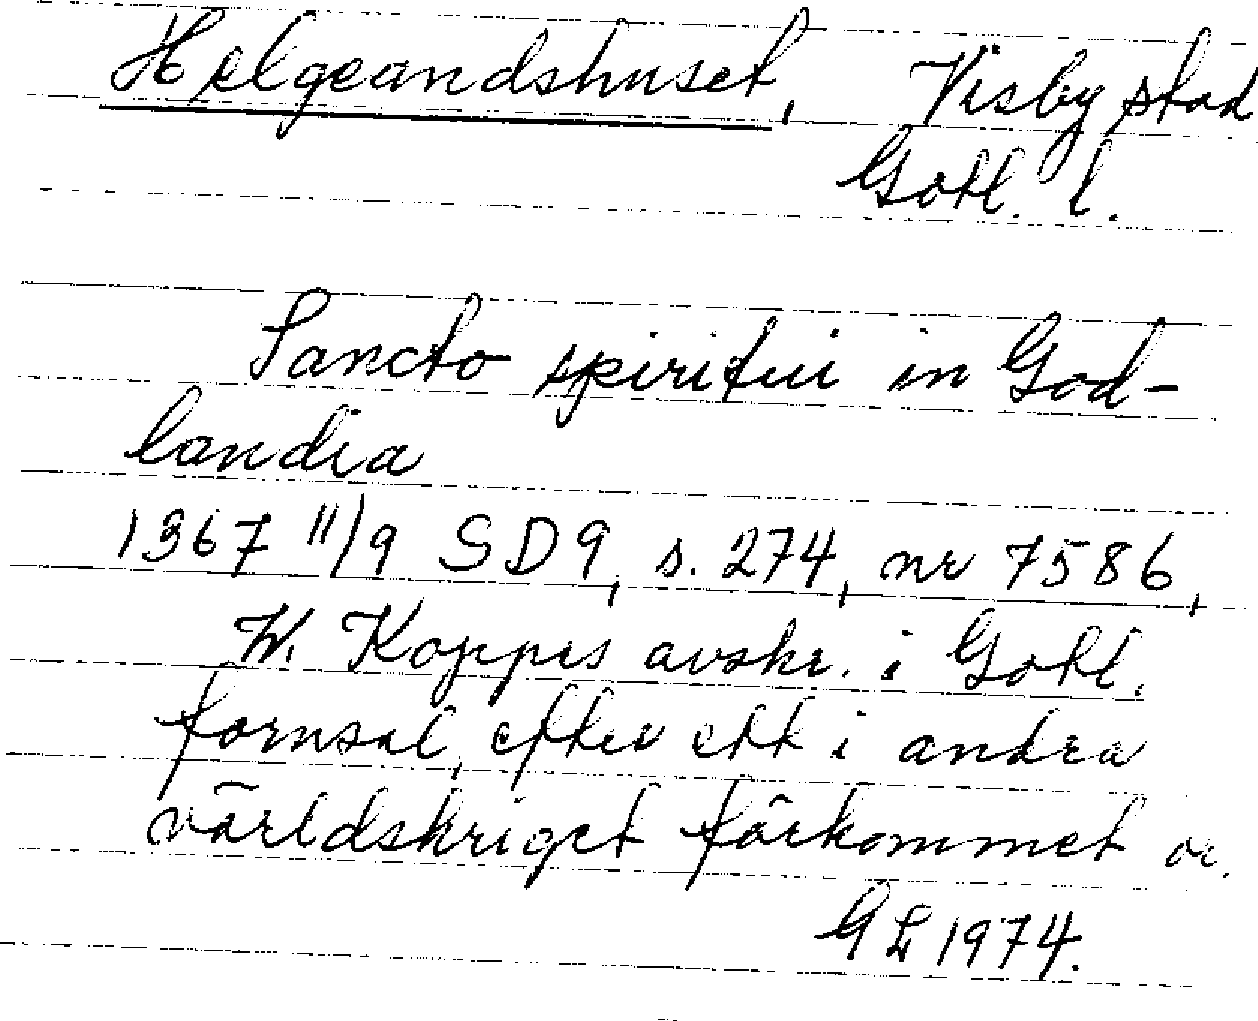 Helgeandshuset, Visby stad
Gotl. l.
Sancto spiritui in God-
landia
1367 11/9 SD9, s. 274, nr 7586,
W. Koppes avskr. i Gotl.
fornsal, efter ett i andra
världskriget förkommet or.
GL 1974.